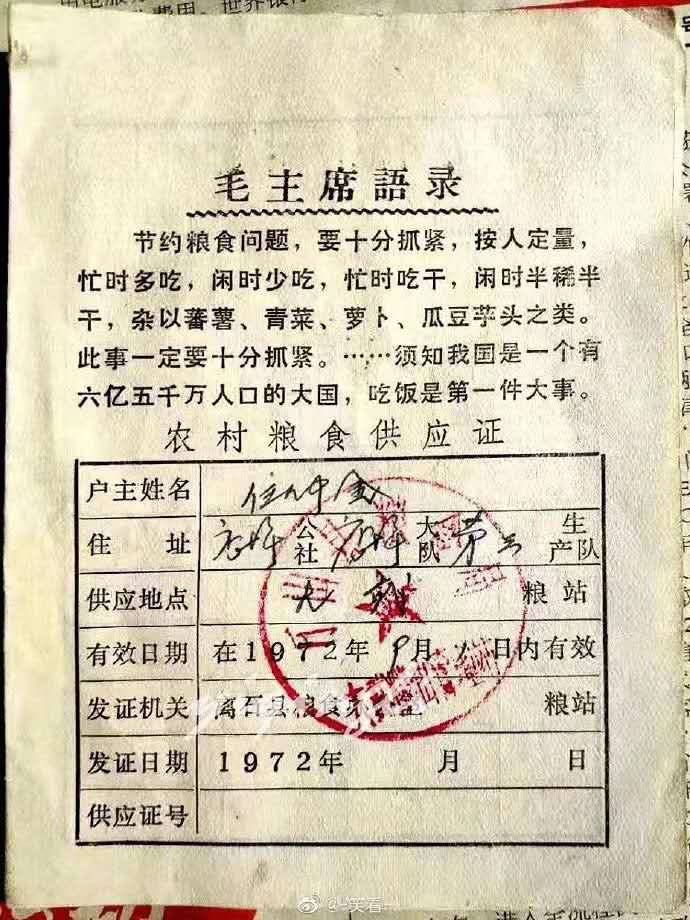 毛主席語录
节约粮食问题，要十分抓紧，按人定量，
忙时多吃，闲时少吃，忙时吃干，闲时半稀半
干，杂以蕃薯、青菜、萝卜、瓜豆芋头之类。
此事一定要十分抓紧。……须知我国是一个有
六亿五千万人口的大国，吃饭是第一件大事。
农村粮食供应证
户主姓名
住址 公社 大队 生产队
供应地点 粮站
有效日期 在1972年9月 日内有效
发证机关 离石县粮食 粮站
发证日期 1972年 月 日
供应证号